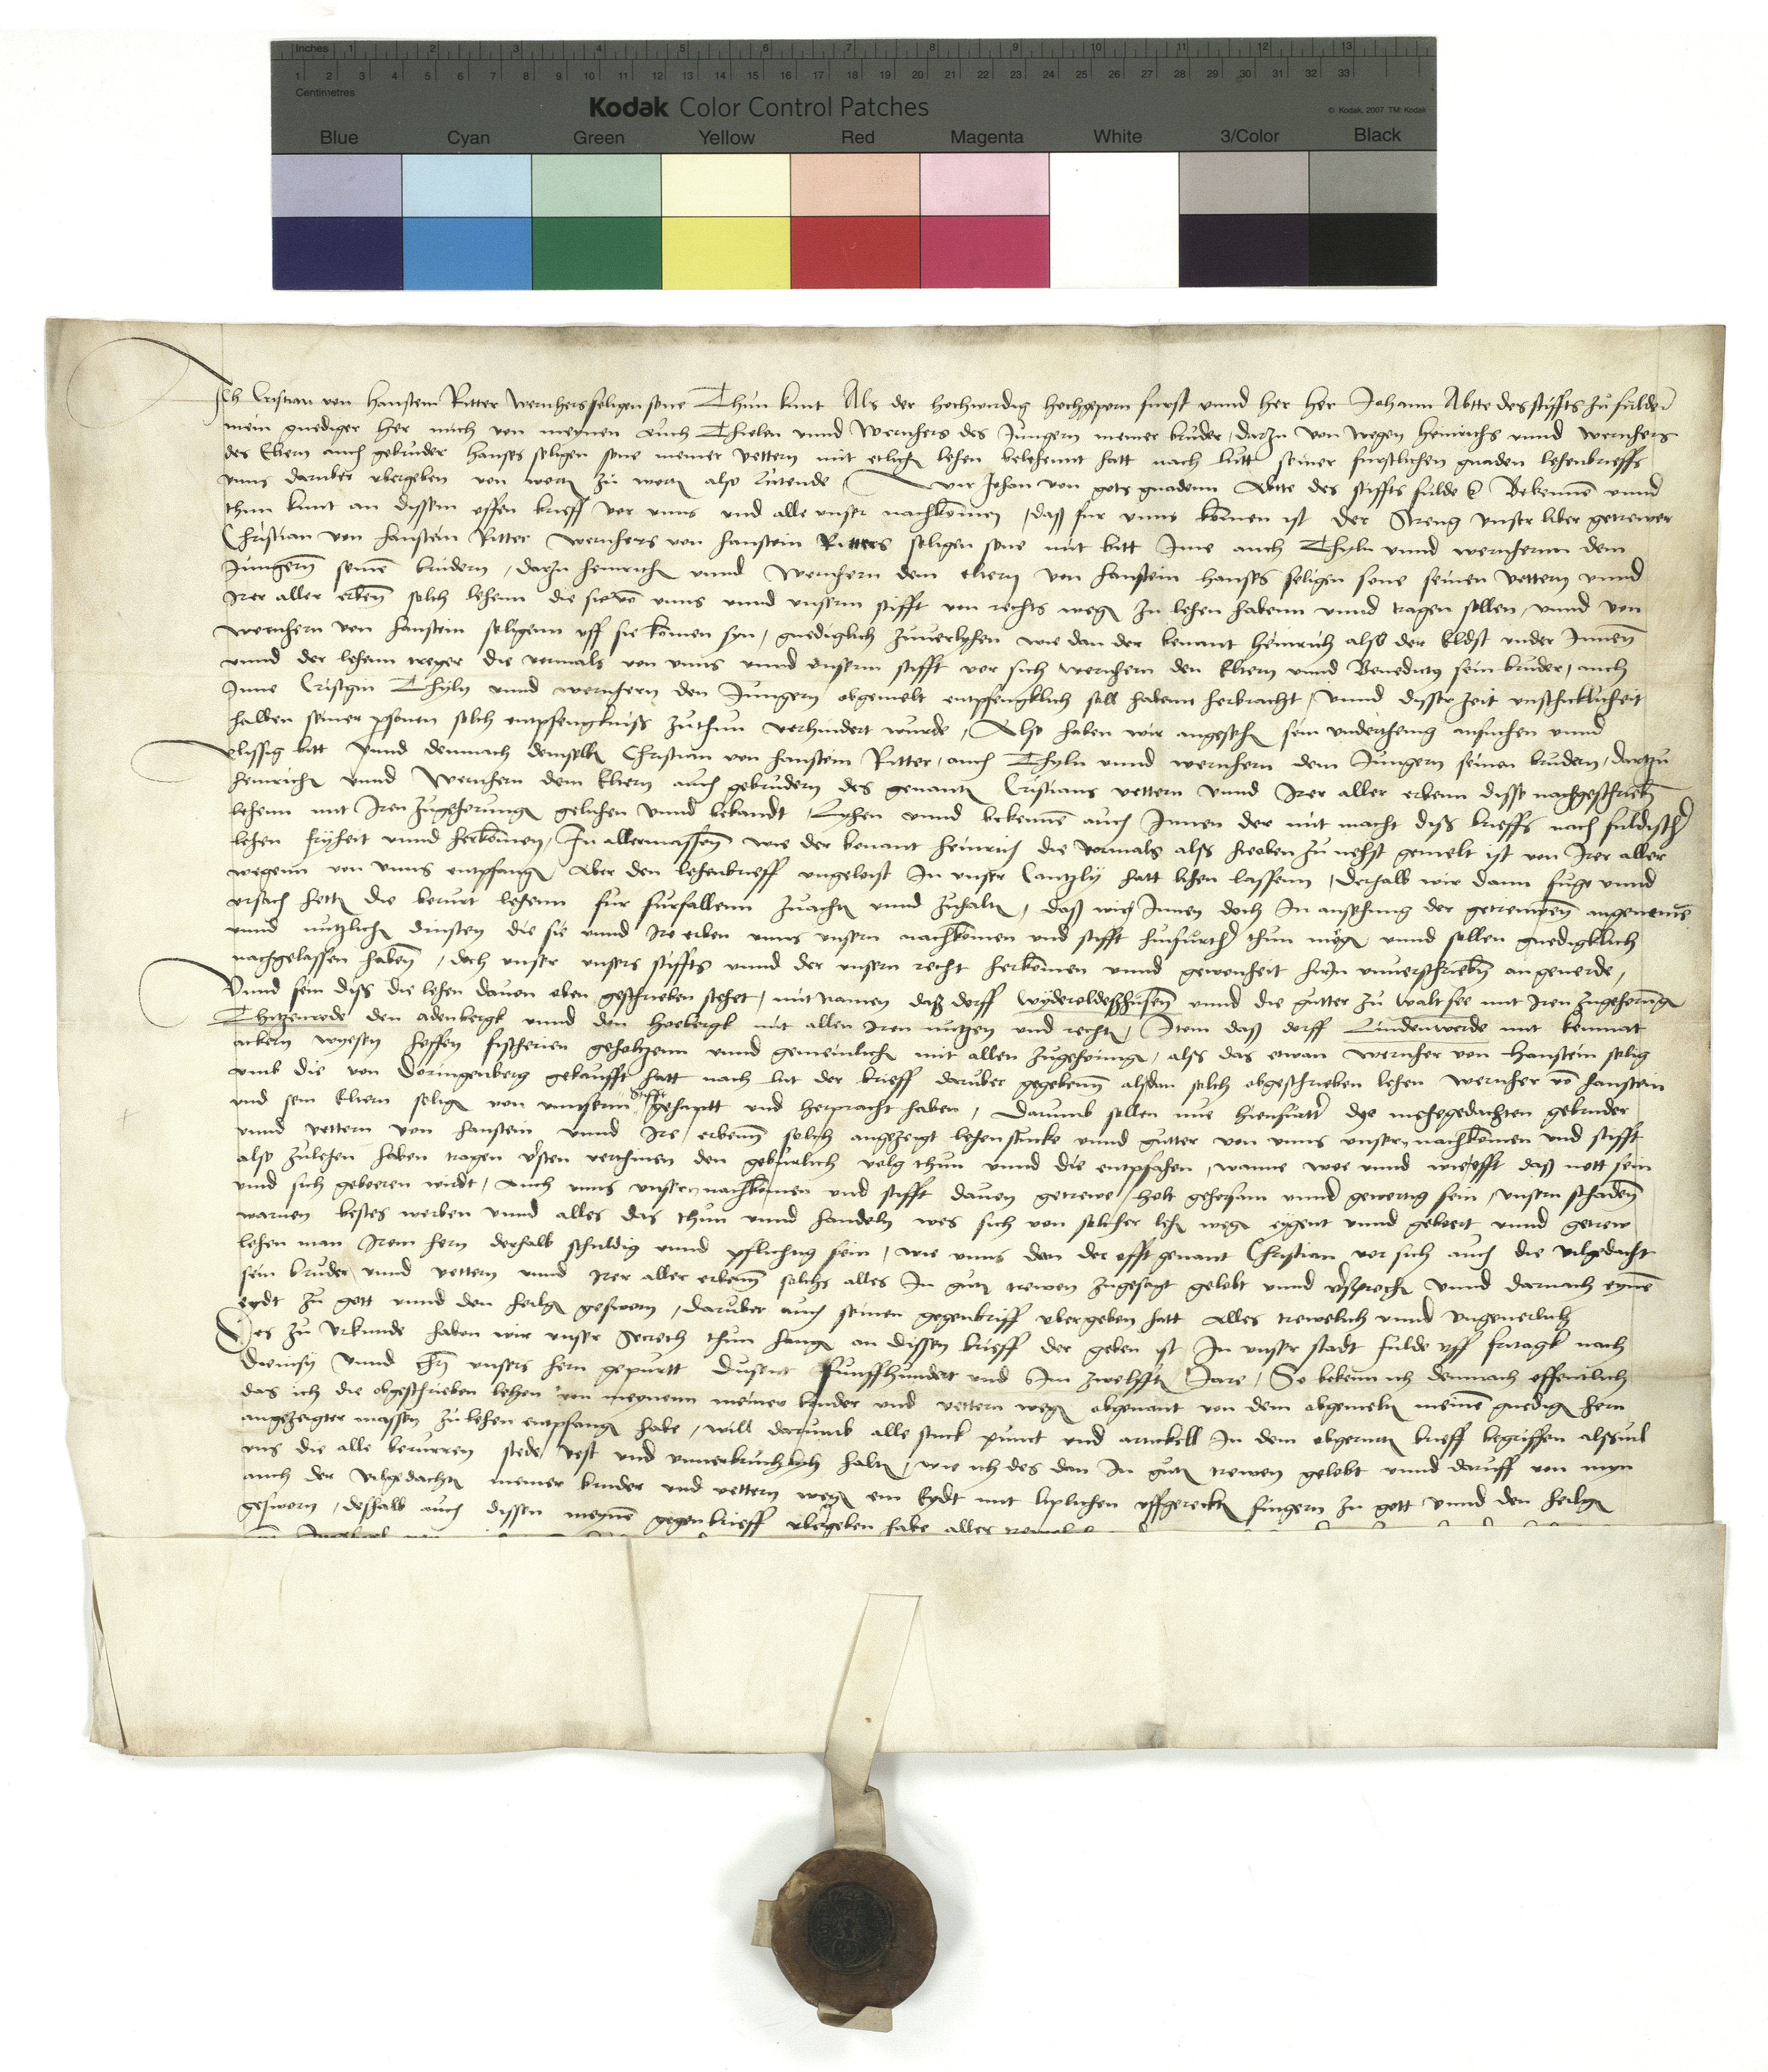 Inches 1 2 3 4 5 6 7 8 9 10 11 12 13
1 2 3 4 5 6 7 8 9 10 11 12 13 14 15 16 17 18 19 20 21 22 23 24 25 26 27 28 29 30 31 32 33
Centimetres
Kodak Color Control Patches
© Kodak, 2007 TM: Kodak
Blue Cyan Green Yellow Red Magenta White 3/Color Black
Ich Cristian von Hanstein Ritter Wernhers seligen sone Thun kunt Als der hochwirdig hochgeporn furst vnnd her her Johann Abtte des stiffts zu fulde
mein gnediger her mich von meynen auch Thielen vnnd Wernhers des Jungern meiner bruder, darzu von wegen Heinrichs vnnd Wernhers
des Eltern auch gebruder Hanses seligen sone meiner vettern mit etlichen lehen belehennt hatt nach lutt seiner furstlichen gnaden lehenbrieffs
vnns daruber vbergeben von wortn zu wortn also lutende Wir Johan von gots gnadenn Abtte des stiffts fulde Bekennen vnnd
thun kunt an dissem offen brieff vor vnns vnd alle vnser nachkomen, daß fur vnns komen ist der Streng vnser liber getrewer
Christian von Hanstein Ritter Wernhers von Hanstein Ritters seligen sone mit bitt Ime auch Thyln vnnd wernhernn dem
Jungern seinen brudern, darzu Heinrichen vnnd Wernhern dem eltern von Hanstein Hanses seligen sone seinen vettern vnnd
Irer aller erben solch lehenn die sie von vnns vnnd vnserm stifft von rechts wegen zu lehen habenn vnnd tragen sollen, vnnd von
Wernhern von Hanstein seligenn vff sie komen syn, gnediglich zuuerlyhen wie dan der benant Heinrich also der Eldst vnder Innen
vnnd der lehenn treger die vormals von vnns vnnd vnserm stifft vor sich Wernhern den Eltern vnnd Benedictus sein bruder, auch
Inne Cristian Thyln vnnd wernhern den Jungern obgemelt entpfengklich soll habenn herbracht, vnnd disser zeit vnschicklicheit
halben seiner personen solch entpfengkniß zuthun verhindert wurde, Also haben wir angesehen sein vnderthenig ansuchen vnnd
vlissig bitt Vnnd dennach demselben Christian von Hanstein Ritter, auch Thyln vnnd wernhern dem Jungern seinen brudern, dartzu
Heinrichen vnnd Wernhern dem Eltern auch gebrudern des genanten Cristians vettern vnnd Irer aller erbenn disse nachgeschrieben
lehenn mit Iren zugehorungen gelichen vnnd bekandt, Lyhen vnnd bekennen auch Innen der mit macht diß brieffs nach fuldischer
lehen fryheit vnnd herkomen, In allermassen wie der benant Heinrich die vormals alß hieoben zu nehst gemelt ist von Irer aller
wegenn von vnns entpfangen Aber den lehenbrieff vngeloist In vnser Cantzly hatt lihen lassenn, derhalb wir dann fuge vnnd
vrsach hetten die berurt lehenn fur furfallenn zuachten vnnd zuhalten, daß wir Innen doch In ansehung der getrewen angenemen
vnnd nutzlichen dinsten die sie vnnd Ire erben vnns vnsern nachkomen vnd stifft hinfurther thun mogen vnnd sollen gnedigklich
nachgelassen haben, doch vnser vnsers stiffts vnnd der vnsern recht herkomen vnnd gewonheit hirin vnuerschrieben an geuerde,
Vnnd sein diß die lehen dauon oben geschrieben stehet, mit namen daß dorff Wyderoldeßhusen vnnd die gutter zu Waltsee mit Iren zugehorungen
Thitzenrode den adenbergk vnnd den Hoebergk mit allen Iren nutzen vnd rechten, Item daß dorff Lindenwerde mit kemmatt
ackern wyesen hoffen fischerien geholtzenn vnnd gemeinlichen mit allen zugehoringen, alß das etwan Wernher von Hanstein selig
vmb die von Doringenberg gekaufft hatt nach lut der brieff daruber gegebenn alßdan solch obgeschrieben lehen Wernher von Hanstein
vnd sein Eltern seligen von vnnserm stifft gehaptt vnd herpracht haben, Darumb sollen nue hienfurtter dye megegedachten gebruder
vnnd vettern von Hanstein vnnd Ire erbenn solich angezeigt lehen stucke vnnd gutter von vnns vnsern nachkomen vnd stifft
also zulehen haben tragen versten verthinen den geburlich volg thun vnnd die entpfahen, wanne wee vnnd wie offt daß nott sein
vnd sich geboeren wirdt, Auch vnns vnsern nachkomen vnd stifft dauon getrewe, holt gehorsam vnnd gewertig sein, vnsern schaden
warnen bestes werben vnnd alles das thun vnnd handeln wes sich von solicher lehen wegen eygent vnnd geboert vnnd getrew
lehen man Irem hern derhalb schuldig vnnd pflichtig sein, wie vnns dan der offt genant Christian vor sich auch die vilgedacht
sein bruder vnnd vettern vnnd Irer aller erbenn solchs alles In guten trewen zugesagt gelobt vnnd versprochen vnnd darnach eynen
eydt zu gott vnnd den heilgen gesworn, daruber auch seinen gegenbriff vbergeben hatt alles trewelich vnnd vngeuerlich
Des zu vrkunde haben wir vnser Secreth thun hangen an dissen brieff der geben ist In vnser stadt fulde vff fritagk nach
Dionisy vnnd vnsers hern gepurtt Dusent Funffhundert vnd Im zwelfften Jare, So bekenn ich dennach offentlich
das ich die obgeschrieben lehen von meynenn meiner bruder vnd vettern wegen obgenant von dem obgemelten meinen gnedigen hern
angezeigter massen zu lehen entpfangen habe, will darumb alle stuck punct vnd artickell In dem obgerurten brieff begriffen alßuil
vns die alle beruren stede, vest vnd vnuerbruchlych halten, wie ich des dan In guten trewen gelobt vnnd daruff von myn
auch der vilgedachten meiner bruder vnd vettern wegen ein Eydt mit liplichen vffgereckten fingern zu gott vnnd den heilgen
gesworn, deßhalb auch dissen meynen gegenbrieff vbergeben habe alles trewelich